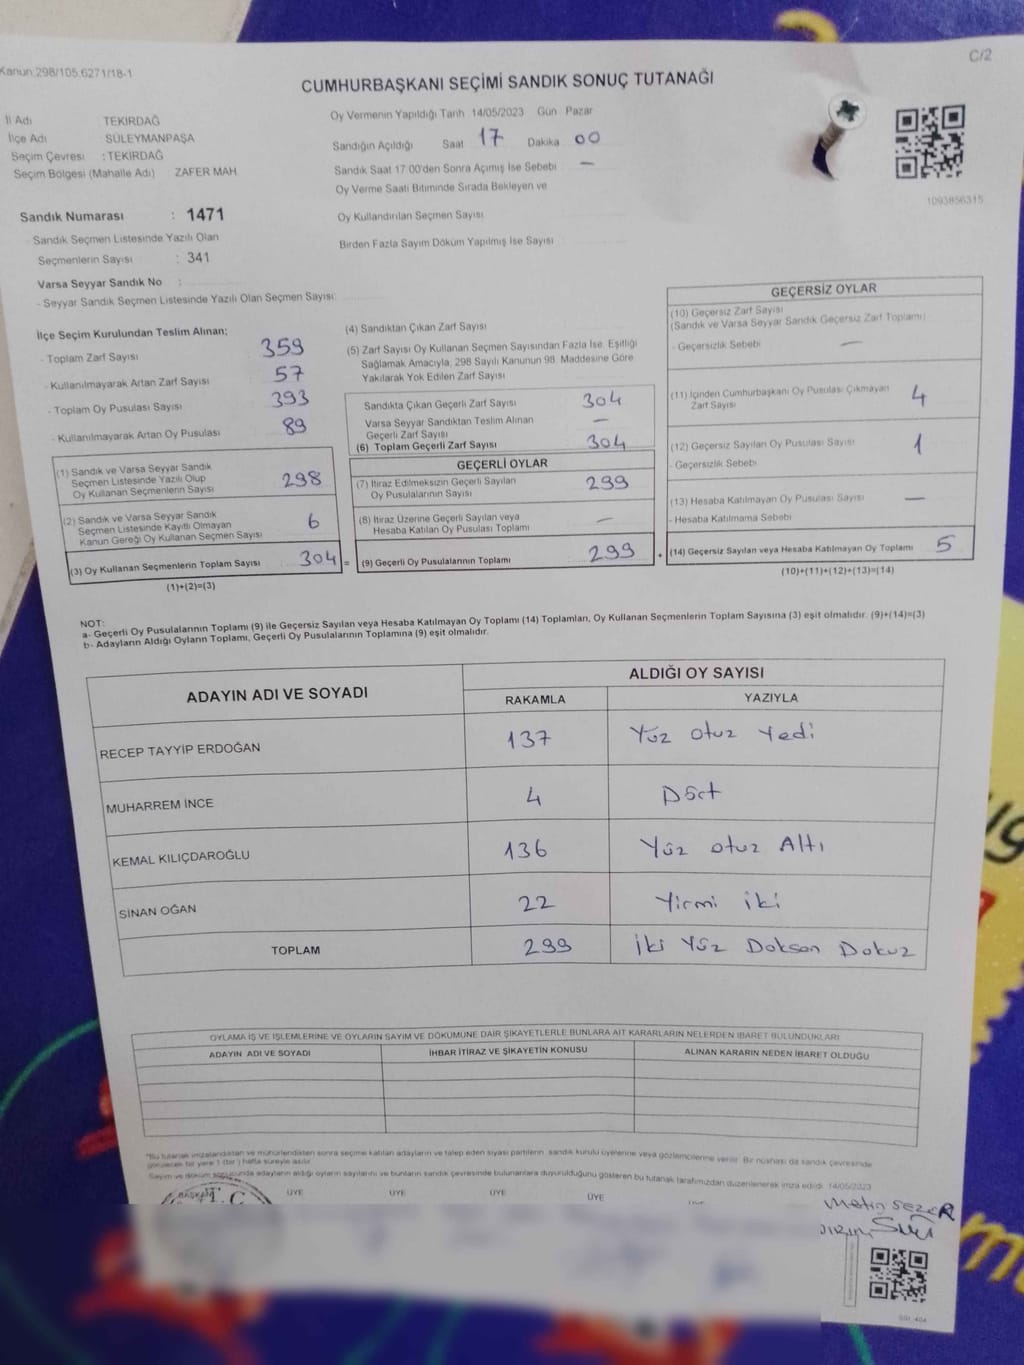 Kanun:298/105.6271/18-1
C/2
CUMHURBAŞKANI SEÇİMİ SANDIK SONUÇ TUTANAĞI
İl Adı TEKİRDAĞ
İlçe Adı SÜLEYMANPAŞA
Seçim Çevresi : TEKİRDAĞ
Seçim Bölgesi (Mahalle Adı) ZAFER MAH.
Sandık Numarası : 1471
Sandık Seçmen Listesinde Yazılı Olan
Seçmenlerin Sayısı : 341
Varsa Seyyar Sandık No :
- Seyyar Sandık Seçmen Listesinde Yazılı Olan Seçmen Sayısı:
Oy Vermenin Yapıldığı Tarih 14/05/2023 Gün Pazar
Sandığın Açıldığı Saat 17 Dakika 00
Sandık Saat 17:00'den Sonra Açımış İse Sebebi —
Oy Verme Saati Bitiminde Sırada Bekleyen ve
Oy Kullandırılan Seçmen Sayısı
Birden Fazla Sayım Döküm Yapılmış İse Sayısı
1093856315
İlçe Seçim Kurulundan Teslim Alınan;
- Toplam Zarf Sayısı 359
- Kullanılmayarak Artan Zarf Sayısı 57
- Toplam Oy Pusulası Sayısı 393
- Kullanılmayarak Artan Oy Pusulası 89
(1) Sandık ve Varsa Seyyar Sandık
Seçmen Listesinde Yazılı Olup
Oy Kullanan Seçmenlerin Sayısı 298
(2) Sandık ve Varsa Seyyar Sandık
Seçmen Listesinde Kayıtlı Olmayan
Kanun Gereği Oy Kullanan Seçmen Sayısı 6
(3) Oy Kullanan Seçmenlerin Toplam Sayısı 304 =
(1)+(2)=(3)
(4) Sandıktan Çıkan Zarf Sayısı
(5) Zarf Sayısı Oy Kullanan Seçmen Sayısından Fazla İse, Eşitliği
Sağlamak Amacıyla, 298 Sayılı Kanunun 98. Maddesine Göre
Yakılarak Yok Edilen Zarf Sayısı
Sandıkta Çıkan Geçerli Zarf Sayısı 304
Varsa Seyyar Sandıktan Teslim Alınan
Geçerli Zarf Sayısı —
(6) Toplam Geçerli Zarf Sayısı 304
GEÇERLİ OYLAR
(7) İtiraz Edilmeksizin Geçerli Sayılan
Oy Pusulalarının Sayısı 299
(8) İtiraz Üzerine Geçerli Sayılan veya
Hesaba Katılan Oy Pusulası Toplamı —
(9) Geçerli Oy Pusulalarının Toplamı 299 +
GEÇERSİZ OYLAR
(10) Geçersiz Zarf Sayısı
(Sandık ve Varsa Seyyar Sandık Geçersiz Zarf Toplamı)
- Geçersizlik Sebebi —
(11) İçinden Cumhurbaşkanı Oy Pusulası Çıkmayan
Zarf Sayısı 4
(12) Geçersiz Sayılan Oy Pusulası Sayısı 1
- Geçersizlik Sebebi
(13) Hesaba Katılmayan Oy Pusulası Sayısı —
- Hesaba Katılmama Sebebi
(14) Geçersiz Sayılan veya Hesaba Katılmayan Oy Toplamı 5
(10)+(11)+(12)+(13)=(14)
NOT:
a- Geçerli Oy Pusulalarının Toplamı (9) ile Geçersiz Sayılan veya Hesaba Katılmayan Oy Toplamı (14) Toplamları, Oy Kullanan Seçmenlerin Toplam Sayısına (3) eşit olmalıdır. (9)+(14)=(3)
b- Adayların Aldığı Oyların Toplamı, Geçerli Oy Pusulalarının Toplamına (9) eşit olmalıdır.
ADAYIN ADI VE SOYADI ALDIĞI OY SAYISI
RAKAMLA YAZIYLA
RECEP TAYYİP ERDOĞAN 137 Yüz otuz Yedi
MUHARREM İNCE 4 Dört
KEMAL KILIÇDAROĞLU 136 Yüz otuz Altı
SİNAN OĞAN 22 Yirmi iki
TOPLAM 299 İki Yüz Doksan Dokuz
OYLAMA İŞ VE İŞLEMLERİNE VE OYLARIN SAYIM VE DÖKÜMÜNE DAİR ŞİKAYETLERLE BUNLARA AİT KARARLARIN NELERDEN İBARET BULUNDUKLARI
ADAYIN ADI VE SOYADI İHBAR İTİRAZ VE ŞİKAYETİN KONUSU ALINAN KARARIN NEDEN İBARET OLDUĞU
"Bu tutanak imzalandıktan ve mühürlendikten sonra seçime katılan adayların ve talep eden siyasi partilerin, sandık kurulu üyelerine veya gözlemcilerine verilir. Bir nüshası da sandık çevresinde
görülecek bir yere 1 (bir) hafta süreyle asılır.
Sayım ve döküm sonucunda adayların aldığı oyların sayılarını ve bunların sandık çevresinde bulunanlara duyurulduğunu gösteren bu tutanak tarafımızdan düzenlenerek imza edildi. 14/05/2023
BAŞKAN T.C ÜYE ÜYE ÜYE ÜYE
Metin SEZER